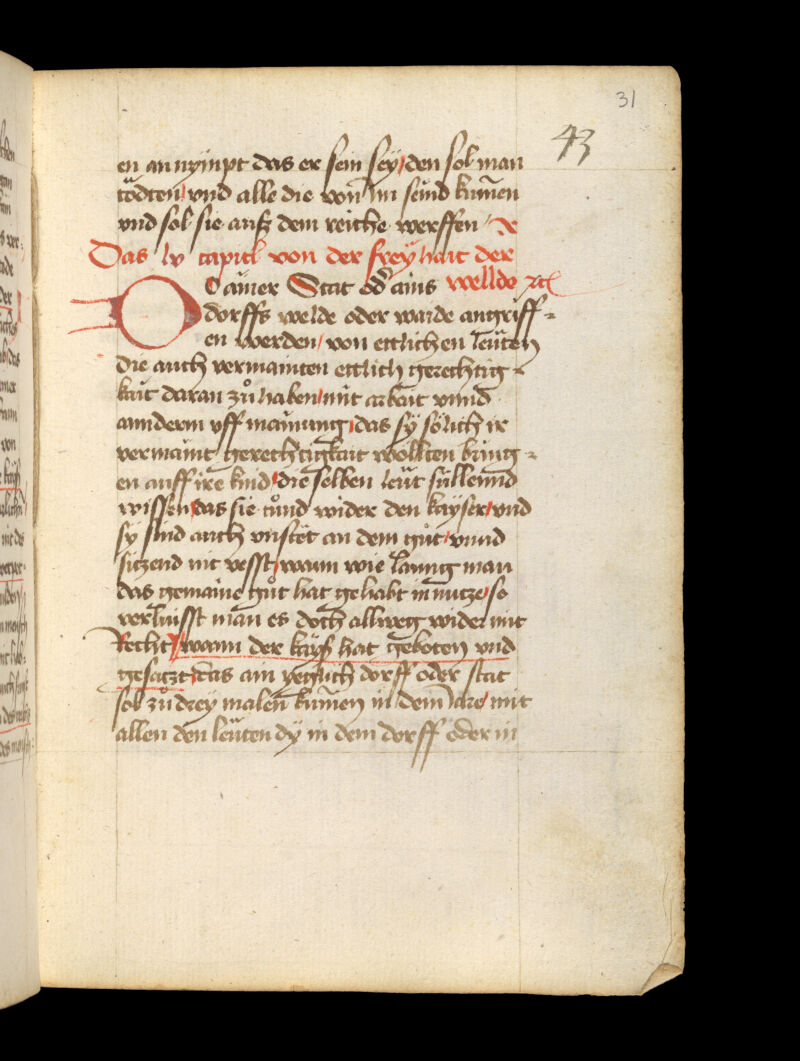 31
43
en an nyinpt das er sein sey / den sol man
tödten / vnd alle die von im seind kumen
vnd sol sie auß dem reiche werffen /
Das lv capitel von der freyhait der
O Cainer Stat od ains wellde etc
dorffs welde oder waide angriff=
en werden / von ettlichen leüten
die auch vermainten ettlich gerechtig=
kait daran zů haben / mit arbait vnnd
annderm vff mainung / das sy sölich ir
vermaint gerechtigkait wollten bring=
en auff ire kind / die selben leüt süllennd
wissen / das sie tůnd wider den kayser / vnd
sy sind auch vnstet an dem gůt / vnnd
sitzend nit vesst / wann wie lanng man
das gemaine gůt hat gehabt in nutze / so
verluisst man es doch allweg wider mit
Recht / wann der kayß hat geboten vnd
gesatzt / das ain yeglich dorff oder stat
sol zů drey malen kumen in dem Jare / mit
allen den leüten dy in dem dorff oder in